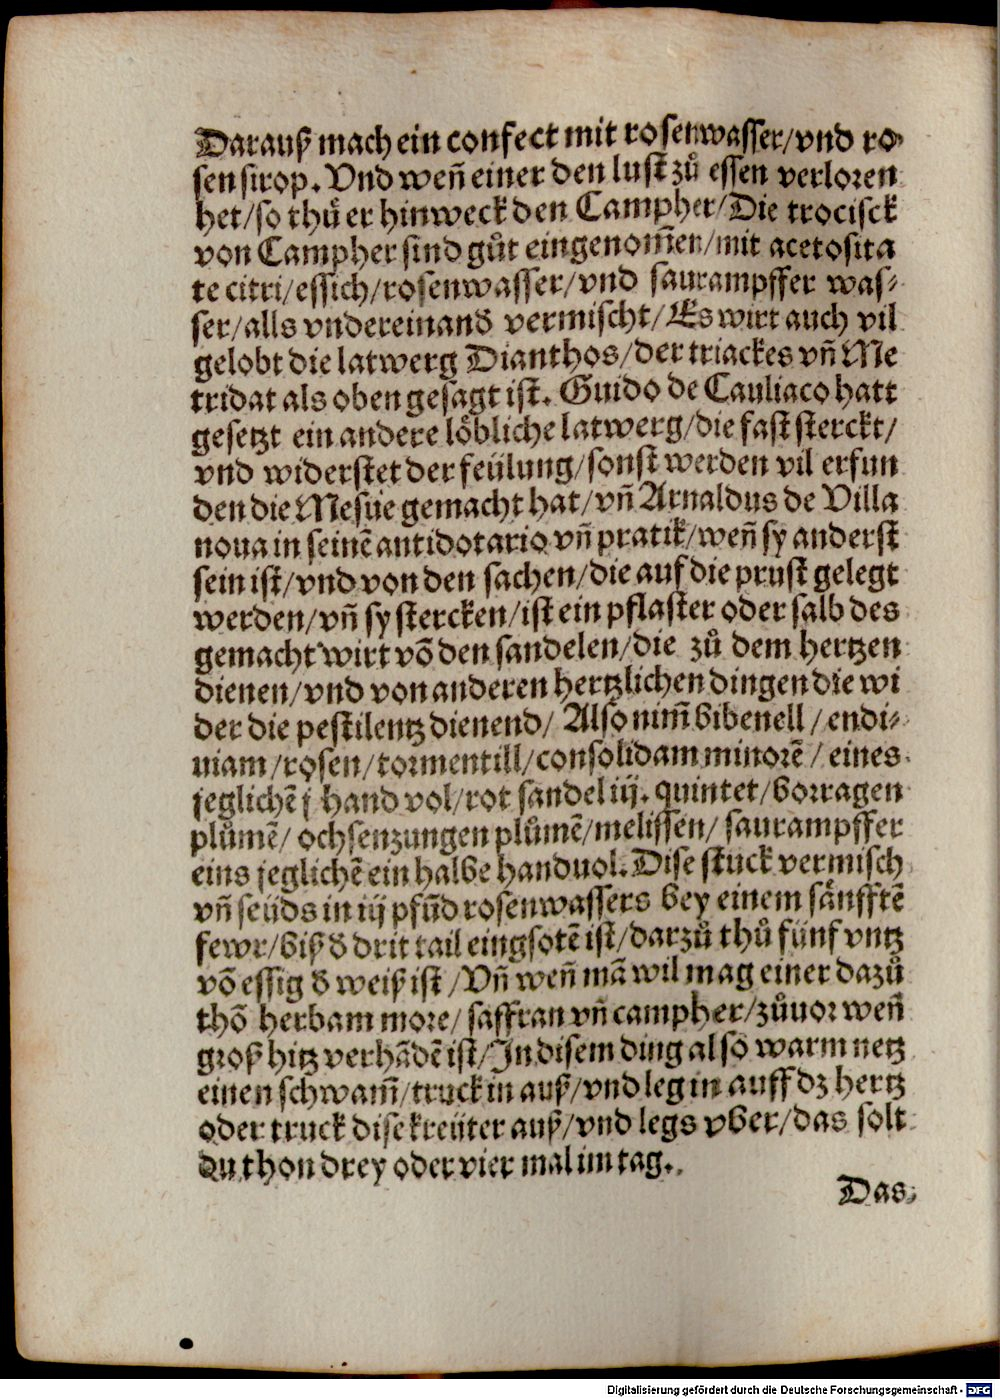 Darauß mach ein confect mit rosenwasser/vnd ro⸗
sen sirop. Vnd weñ einer den lust zů essen verloren
het/so thů er hinweck den Campher/Die trocisck
von Campher sind gůt eingenom̃en/mit acetosita
te citri/essich/rosenwasser/vnd saurampffer was⸗
ser/alls vndereinand vermischt/Es wirt auch vil
gelobt die latwerg Dianthos/der triackes vñ Me
tridat als oben gesagt ist. Guido de Cauliaco hatt
gesetzt ein andere löbliche latwerg/die fast sterckt/
vnd widerstet der feülung/sonst werden vil erfun
den die Mesue gemacht hat/vñ Arnaldus de Villa
noua in seinẽ antidotario vñ pratik/weñ sy anderst
sein ist/vnd von den sachen/die auf die prust gelegt
werden/vñ sy stercken/ist ein pflaster oder salb des
gemacht wirt võ den sandelen/die zů dem hertzen
dienen/vnd von anderen hertzlichen dingen die wi
der die pestilentz dienend/ Also nim̃ bibenell/endi⸗
uiam/rosen/tormentill/consolidam minorẽ/eines
jeglichẽ j hand vol/rot sandel iij. quintet/borragen
plůmẽ/ ochsenzungen plůmẽ/melissen/ saurampffer
eins jeglichẽ ein halbe handuol. Dise stuck vermisch
vñ seüds in iij pfũd rosenwassers bey einem sänfftẽ
fewr/biß d drit tail eingsotẽ ist/darzů thů fünf vntz
võ essig d weiß ist/Vñ weñ mã wil mag einer dazů
thõ herbam more/saffran vñ campher/zůuor weñ
groß hitz verhãdẽ ist/In disem ding also warm netz
einen schwam̃/truck in auß/vnd leg in auff dz hertz
oder truck dise kreüter auß/vnd legs vber/das solt
du thon drey oder vier mal im tag.
Das
Digitalisierung gefördert durch die Deutsche Forschungsgemeinschaft - DFG